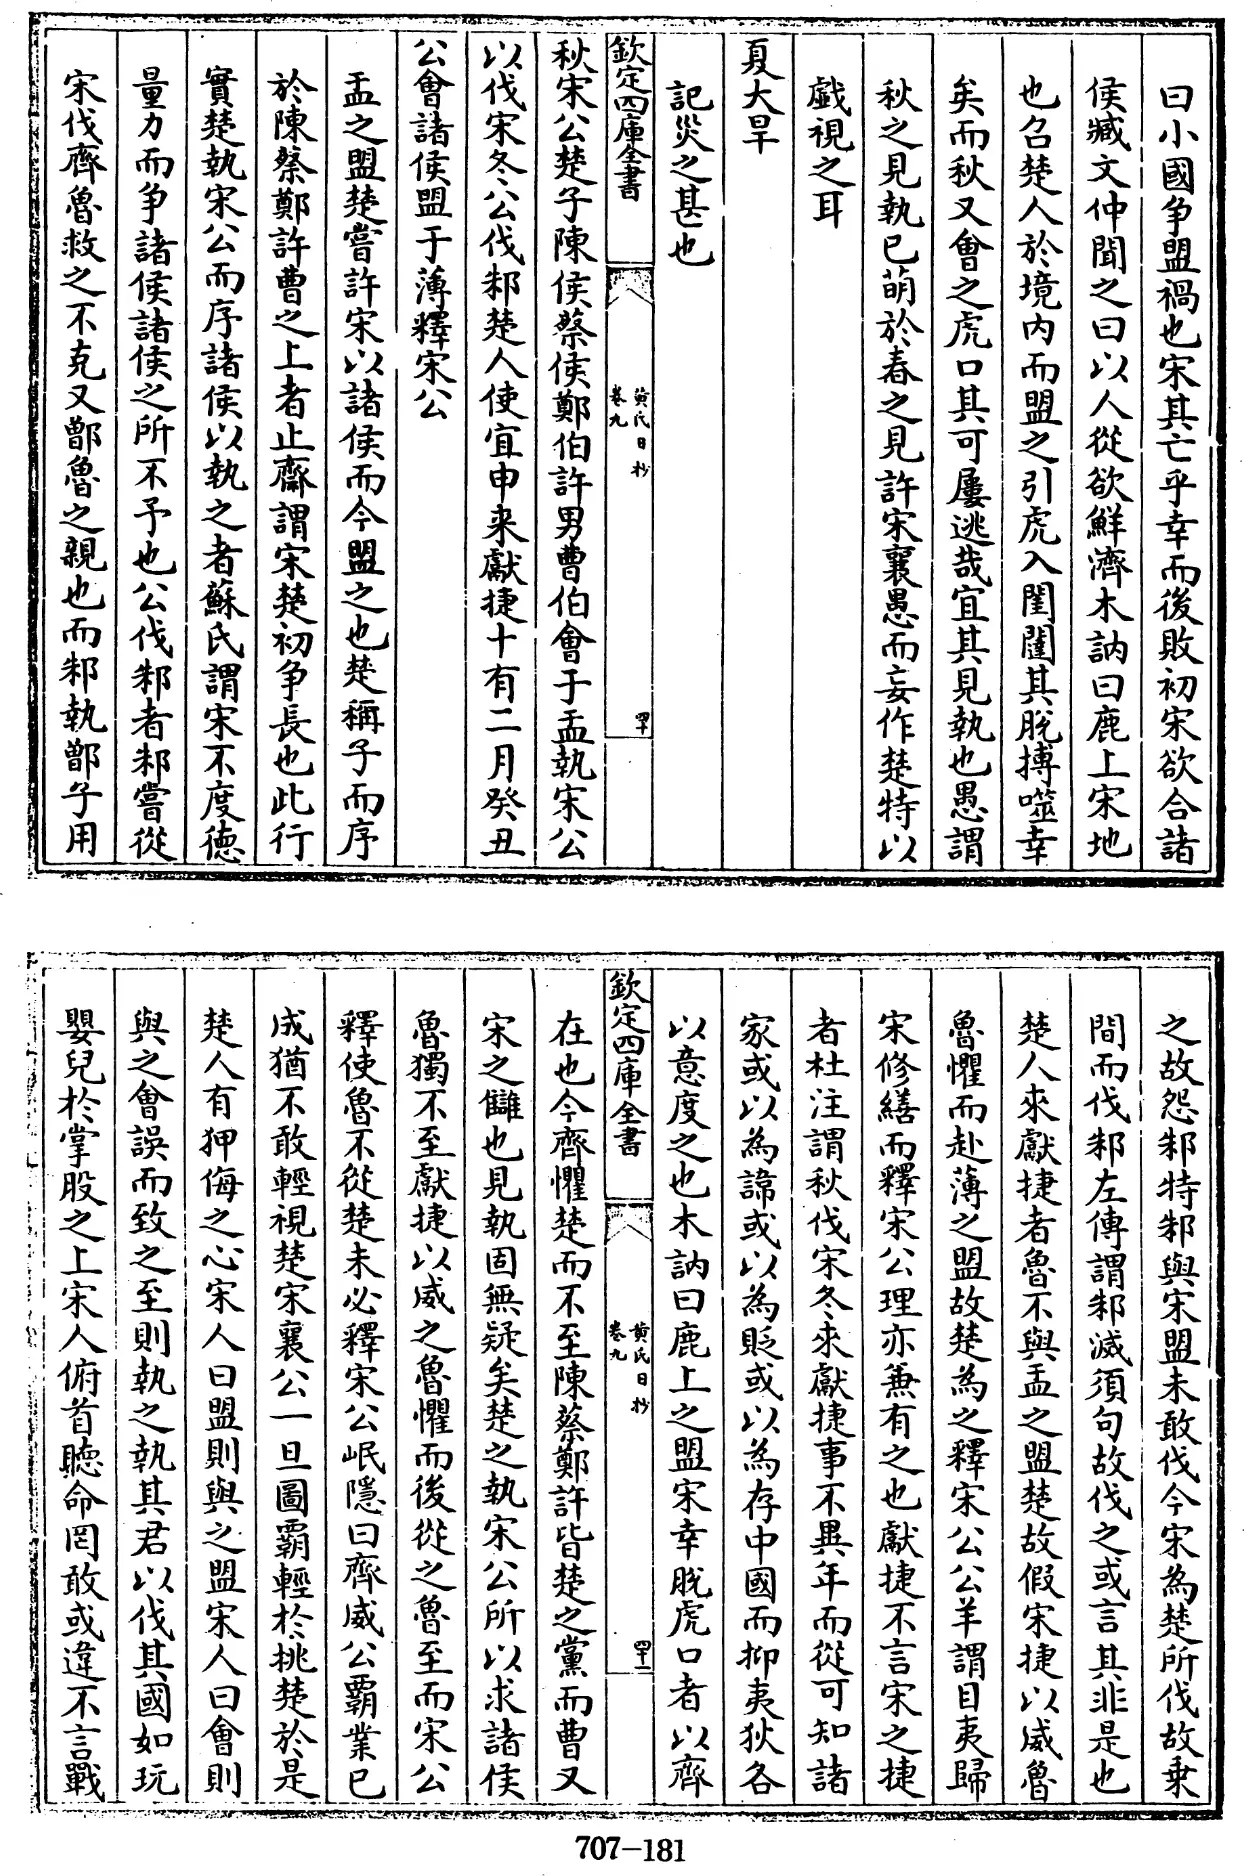 曰小國争盟禍也宋其亡乎幸而後敗初宋欲合諸
侯臧文仲聞之曰以人從欲鮮濟木訥曰鹿上宋地
也召楚人於境内而盟之引虎入閨闥其脱搏噬幸
矣而秋又會之虎口其可屢逃哉宜其見執也愚謂
秋之見執已萌於春之見許宋襄愚而妄作楚特以
戲視之耳
夏大旱
記災之甚也
欽定四庫全書
黄氏日抄
卷九
四十
秋宋公楚子陳侯蔡侯鄭伯許男曹伯會于盂執宋公
以伐宋冬公伐邾楚人使宜申来獻捷十有二月癸丑
公會諸侯盟于薄釋宋公
盂之盟楚嘗許宋以諸侯而今盟之也楚稱子而序
於陳蔡鄭許曹之上者止齋謂宋楚初争長也此行
實楚執宋公而序諸侯以執之者蘇氏謂宋不度德
量力而争諸侯諸侯之所不予也公伐邾者邾嘗從
宋伐齊魯救之不克又鄫魯之親也而邾執鄫子用
之故怨邾特邾與宋盟未敢伐今宋為楚所伐故乗
間而伐邾左傳謂邾滅須句故伐之或言其非是也
楚人來獻捷者魯不與盂之盟楚故假宋捷以威魯
魯懼而赴薄之盟故楚為之釋宋公公羊謂目夷歸
宋修繕而釋宋公理亦兼有之也獻捷不言宋之捷
者杜注謂秋伐宋冬來獻捷事不異年而從可知諸
家或以為諱或以為貶或以為存中國而抑夷狄各
以意度之也木訥曰鹿上之盟宋幸脱虎口者以齊
欽定四庫全書
黄氏日抄
卷九
四十一
在也今齊懼楚而不至陳蔡鄭許皆楚之黨而曹又
宋之讎也見執固無疑矣楚之執宋公所以求諸侯
魯獨不至獻捷以威之魯懼而後從之魯至而宋公
釋使魯不從楚未必釋宋公岷隱曰齊威公霸業已
成猶不敢輕視楚宋襄公一旦圖霸輕於挑楚於是
楚人有狎侮之心宋人曰盟則與之盟宋人曰會則
與之會誤而致之至則執之執其君以伐其國如玩
嬰兒於掌股之上宋人俯首聽命罔敢或違不言戰
707-181